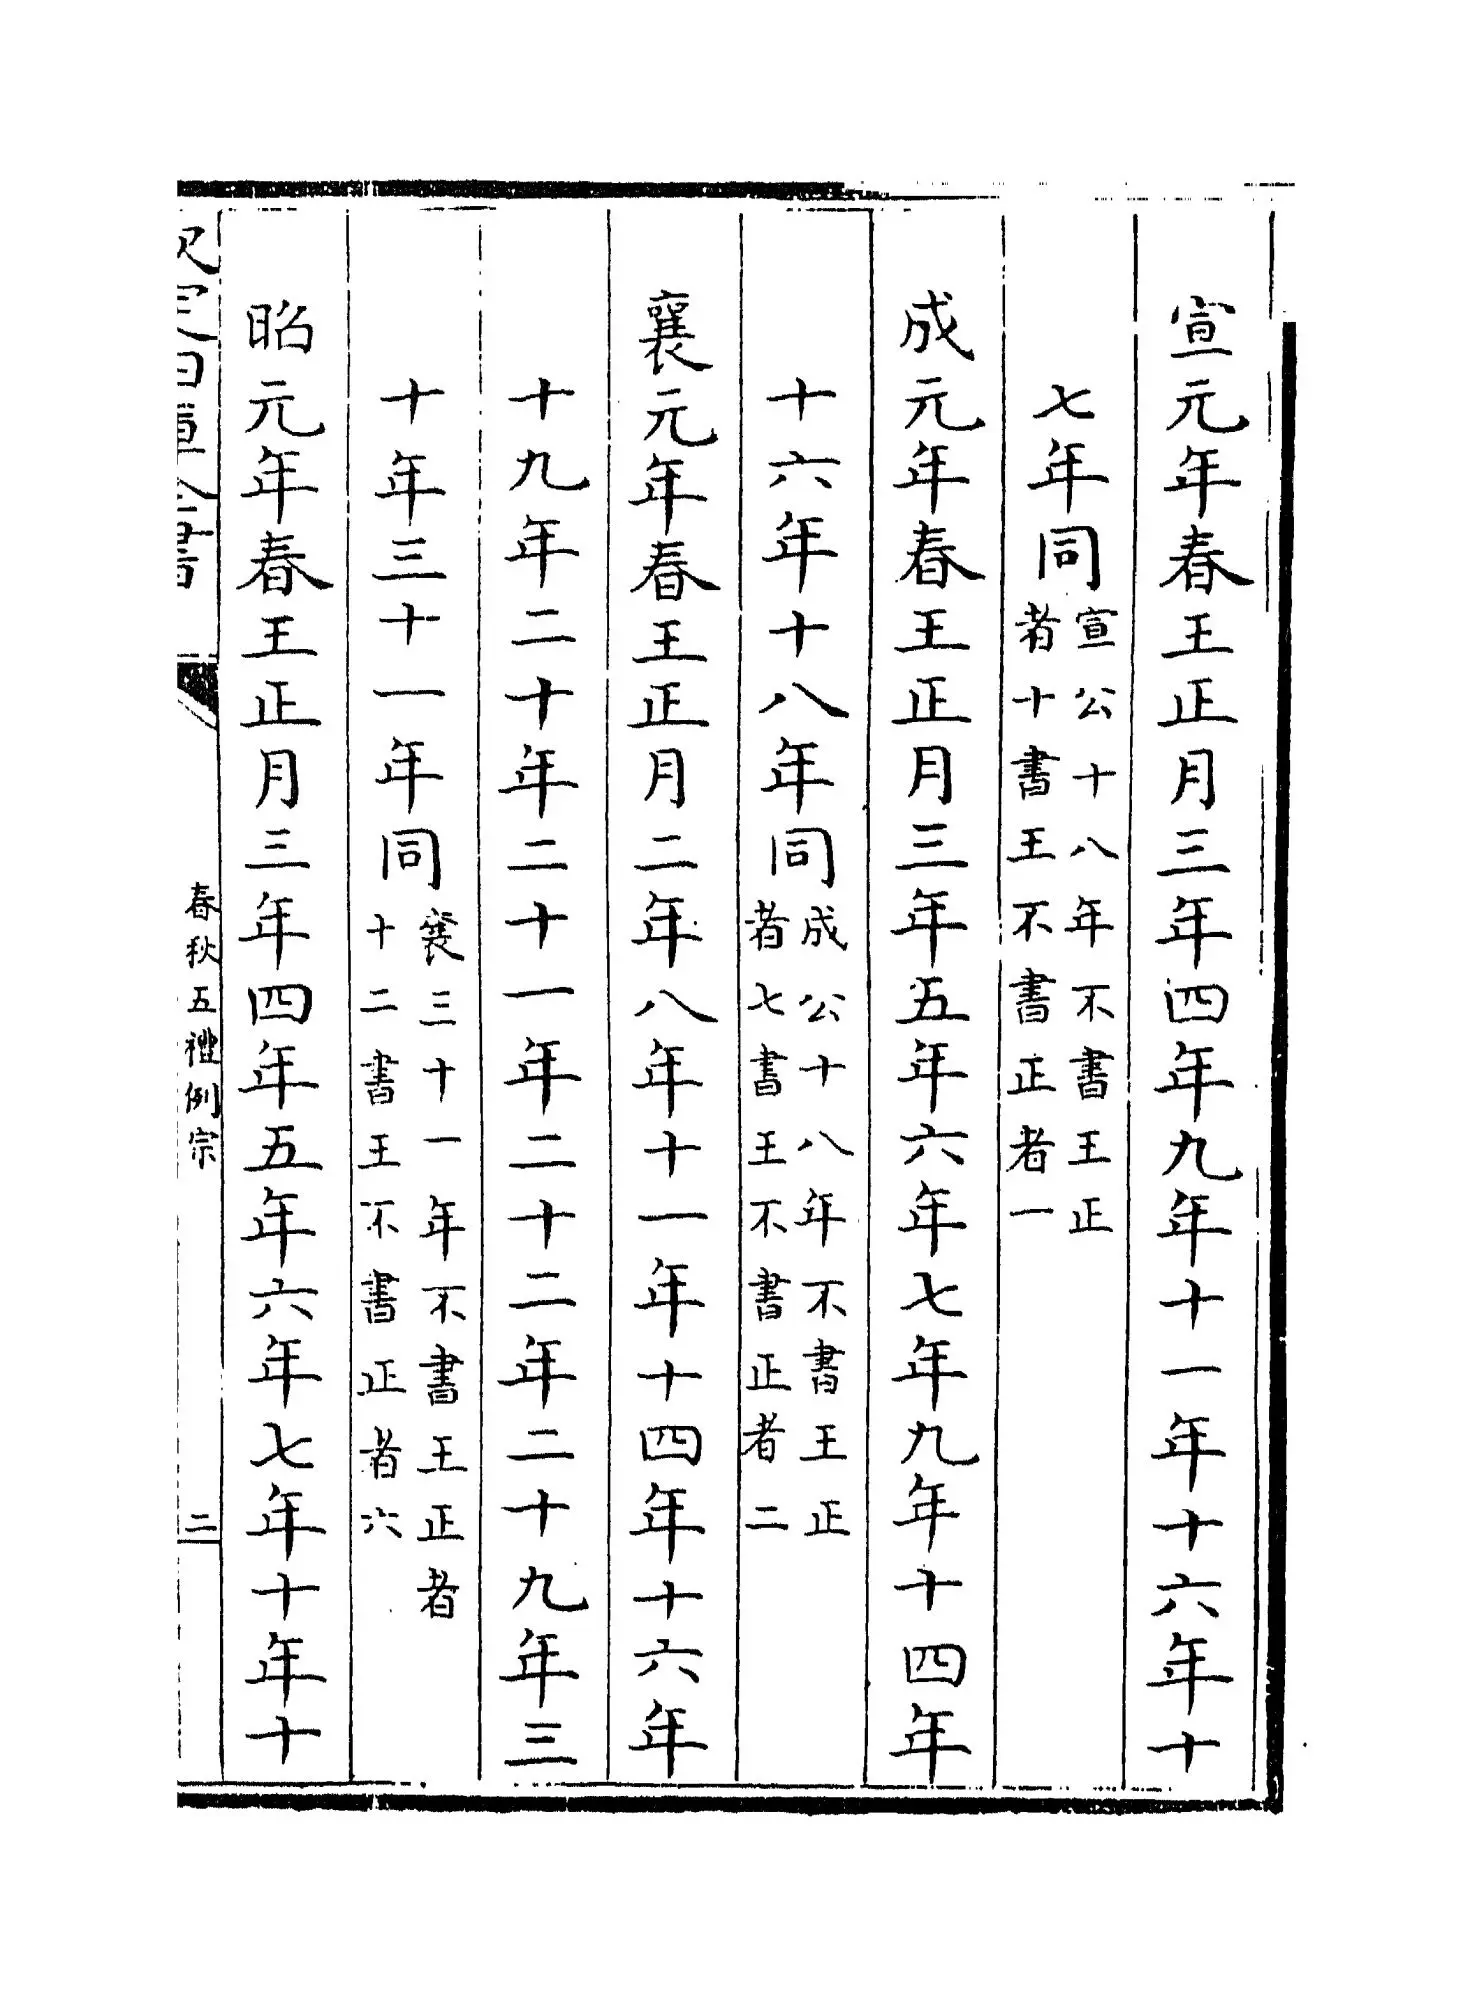 宣元年春王正月三年四年九年十一年十六年十
七年同宣公十八年不書王正
者十書王不書正者一
成元年春王正月三年五年六年七年九年十四年
十六年十八年同成公十八年不書王正
者七書王不書正者二
襄元年春王正月二年八年十一年十四年十六年
十九年二十年二十一年二十二年二十九年三
十年三十一年同襄三十一年不書王正者
十二書王不書正者六
昭元年春王正月三年四年五年六年七年十年十
欽定四庫全書
春秋五禮例宗
二